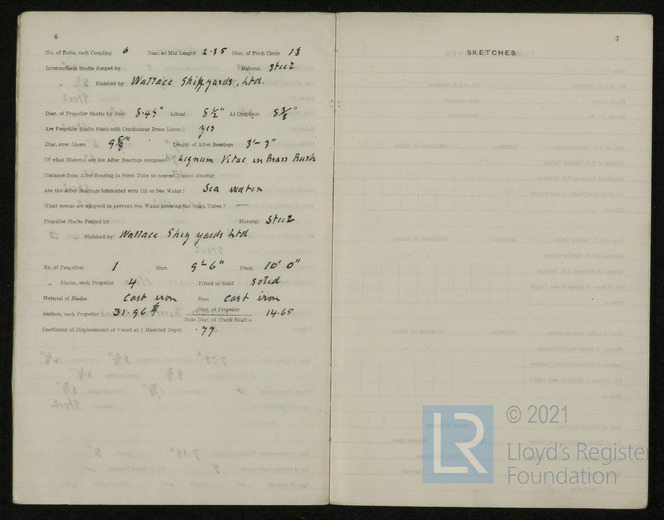 6
No. of Bolts, each Coupling 6 Diar. at Mid Length 2.35 Diar. of Pitch Circle
Intermediate Shafts Forged by Material Steel
Finished by Wallace Shipyards, Ltd.
Diar. of Propeller Shafts by Rule 8.44" Actual 8½" At Couplings
Are Propeller Shafts fitted with Continuous Brass Liners? yes
Diar. over Liners 9⅝" Length of After Bearings 3'-3"
Of what Material are the After Bearings composed? Lignum Vitae in Brass Bush
Distance from After Bearing in Stern Tube to nearest Tunnel Bearing
Are the After Bearings lubricated with Oil or Sea Water? Sea water
What means are adopted to prevent Sea Water entering the Stern Tubes? —
Propeller Shafts Forged by Material Steel
Finished by Wallace Ship yards Ltd
No. of Propellers 1 Diar. 9'-6" Pitch 10' 0"
Blades, each Propeller 4 Fitted or Solid Solid
Material of Blades Cast iron Boss Cast iron
Surface, each Propeller 31.96 Diar. of Propeller 14.65
Rule Diar. of Crank Shafts
Coefficient of Displacement of Vessel at ¾ Moulded Depth .77
7
SKETCHES.
LR
© 2021
Lloyd's Register
Foundation